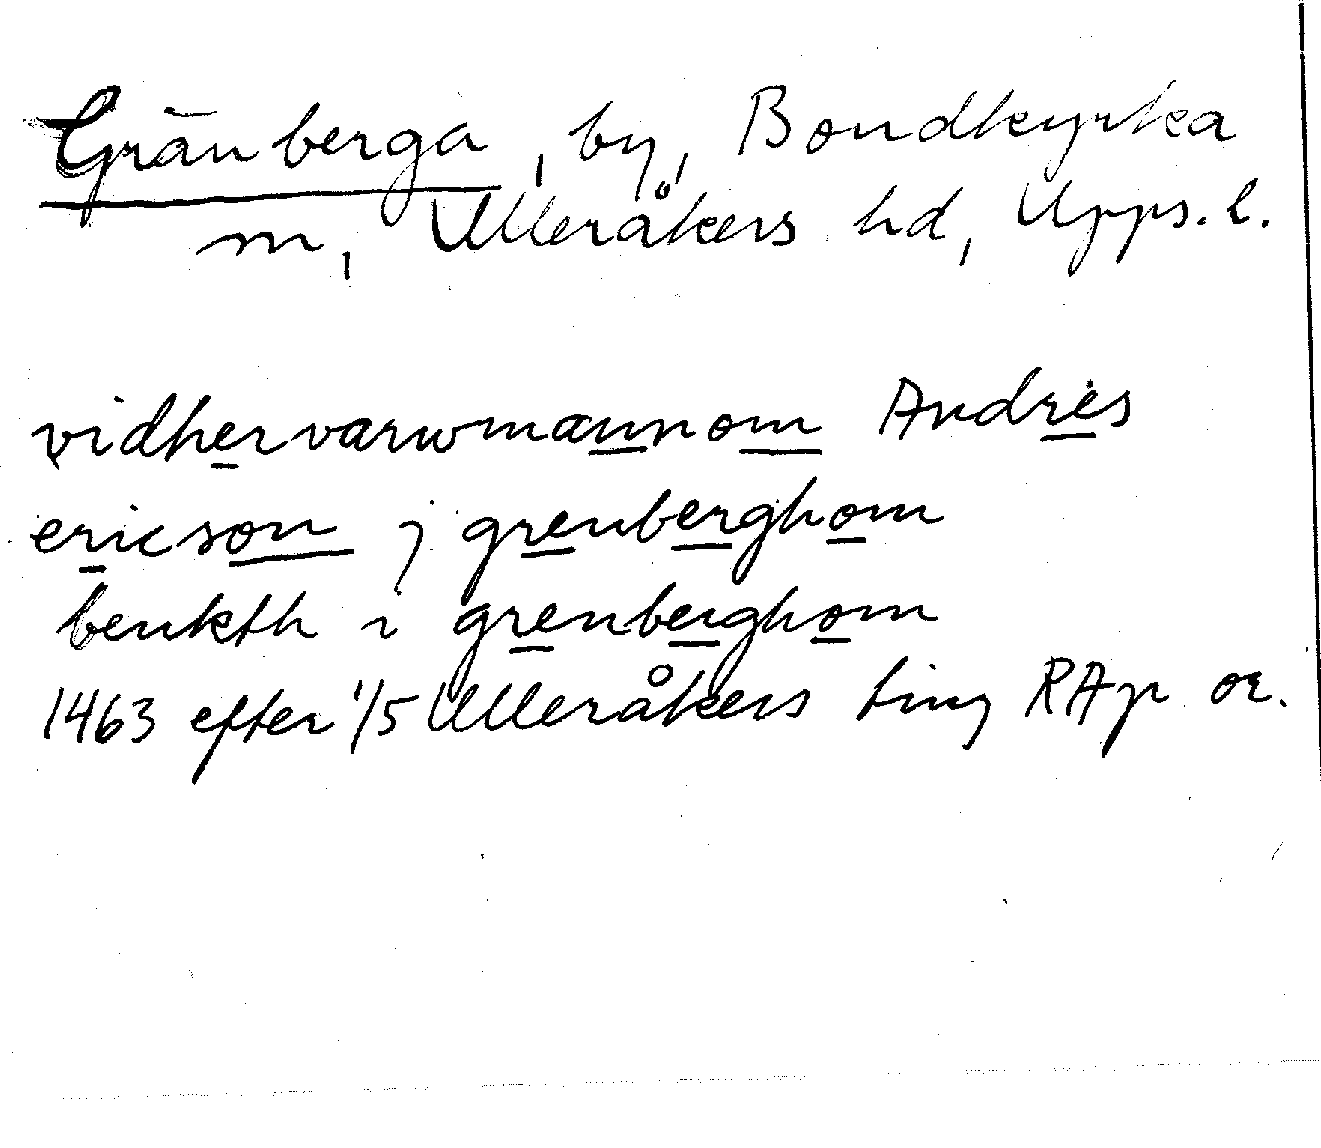 Gränberga, by, Bondkyrka
sn, Ulleråkers hd, Upps. l.
vidhervarwmannom Andres
ericson j grenberghom
benkth i grenberghom
1463 efter 1/5 Ulleråkers ting RAp or.